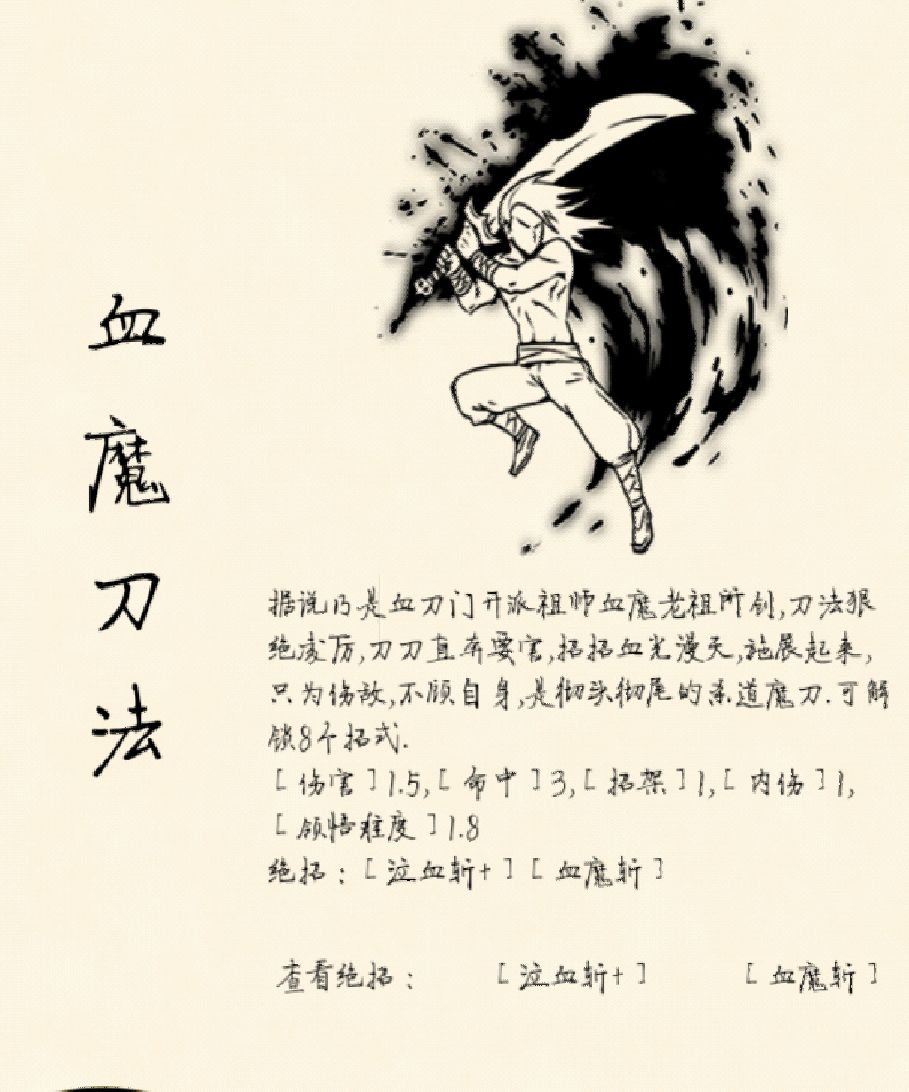 血魔刀法
据说乃是血刀门开派祖师血魔老祖所创,刀法狠
绝凌厉,刀刀直奔要害,招招血光漫天,施展起来,
只为伤敌,不顾自身,是彻头彻尾的杀道魔刀.可解
锁8个招式.
[伤害]1.5,[命中]3,[招架]1,[内伤]1,
[领悟难度]1.8
绝招:[泣血斩+][血魔斩]
查看绝招: [泣血斩+] [血魔斩]